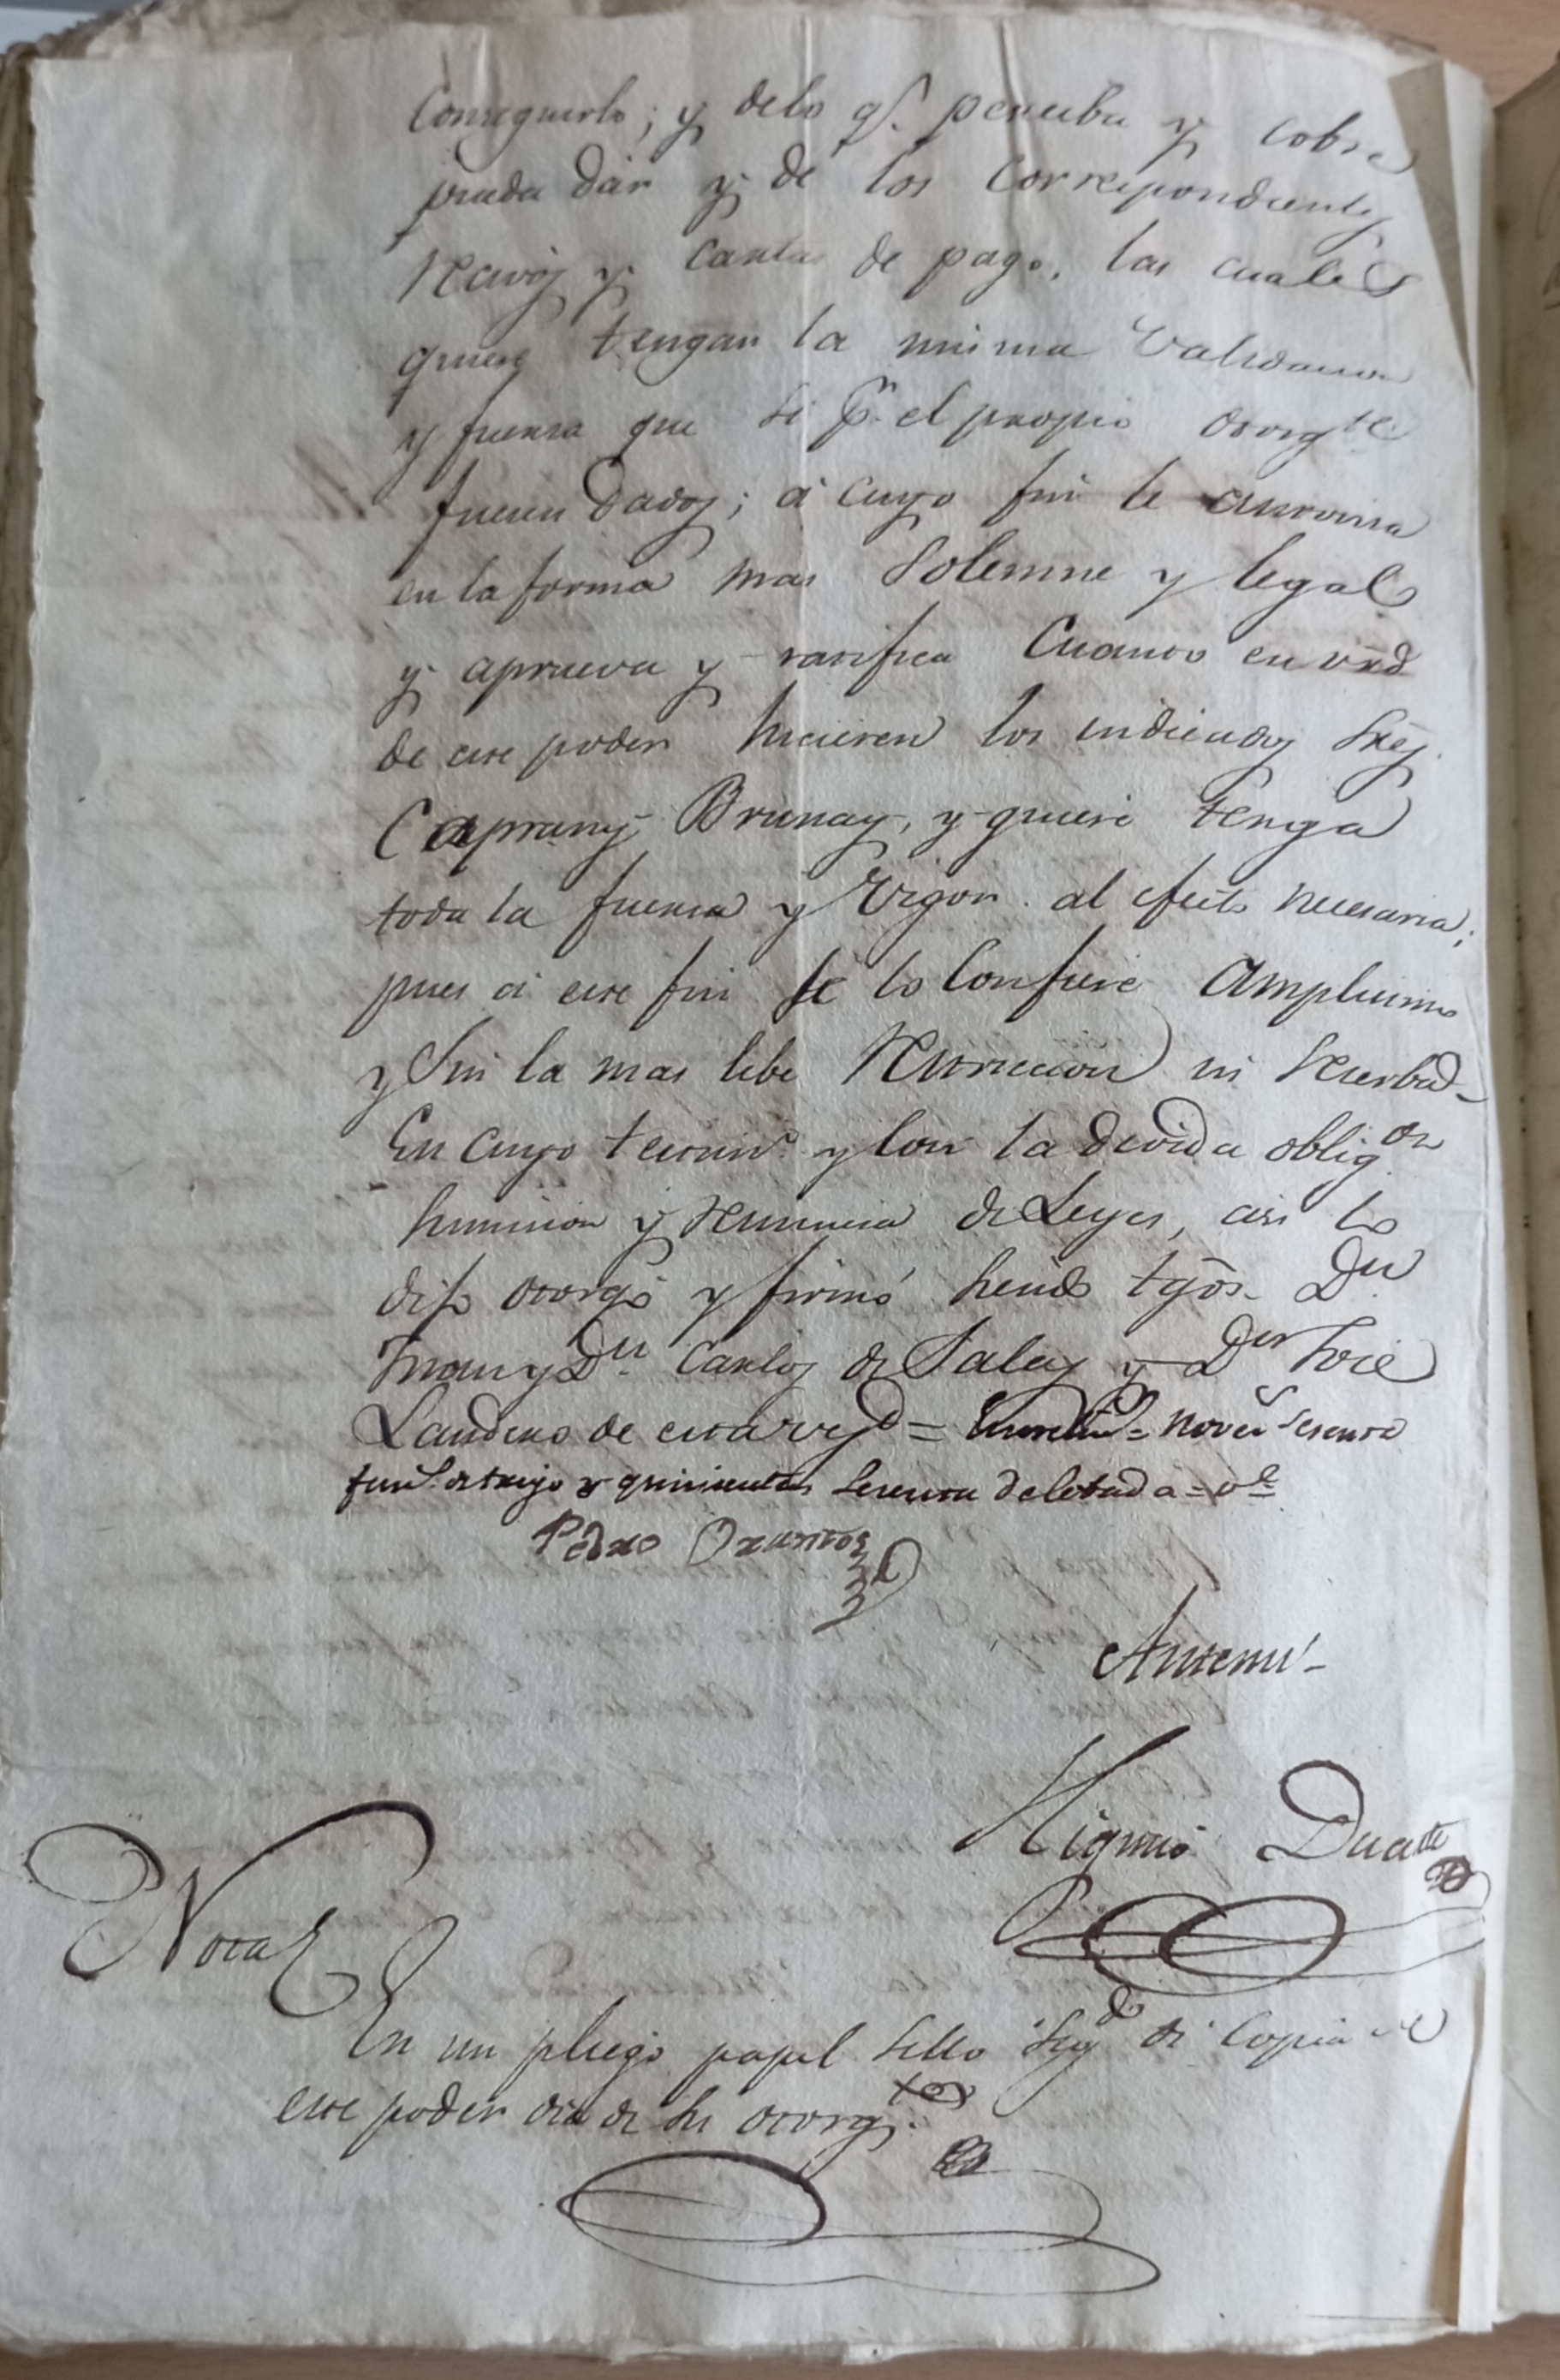 Conseguirlo; y delo q.e perciba y cobre
pueda dar y dé los correspondientes
recivos y cartas de pago, las cuales
quiere tengan la misma validacion
y fuerza que si p.r el propio otorg.te
fueren dados; á cuyo fin le autoriza
en la forma mas solemne y legal
y aprueva y ratifica cuanto en vrd
de este poder hicieren los indicados Sres.
Caprany, Brunay, y quiere tenga
toda la fuerza y vigor al efecto necesaria;
pues á este fin se lo confiere amplisimo
y sin la mas lebe restriccion ni
En cuyo termin.o y con la devida oblig.on
sumision y renuncia de Leyes, asi lo
dijo otorgó y firmó siendo tgos. D.n
Juan y D.n Carlos de Salas y D.n José
Laudeno de esta vez.d = = sesenta
y quinientos sesenta = v.e
Pedro
Antemi
Higinio Duarte
Nota
En un pliego papel sello seg.do di copia de
este poder dia de su otorg.to